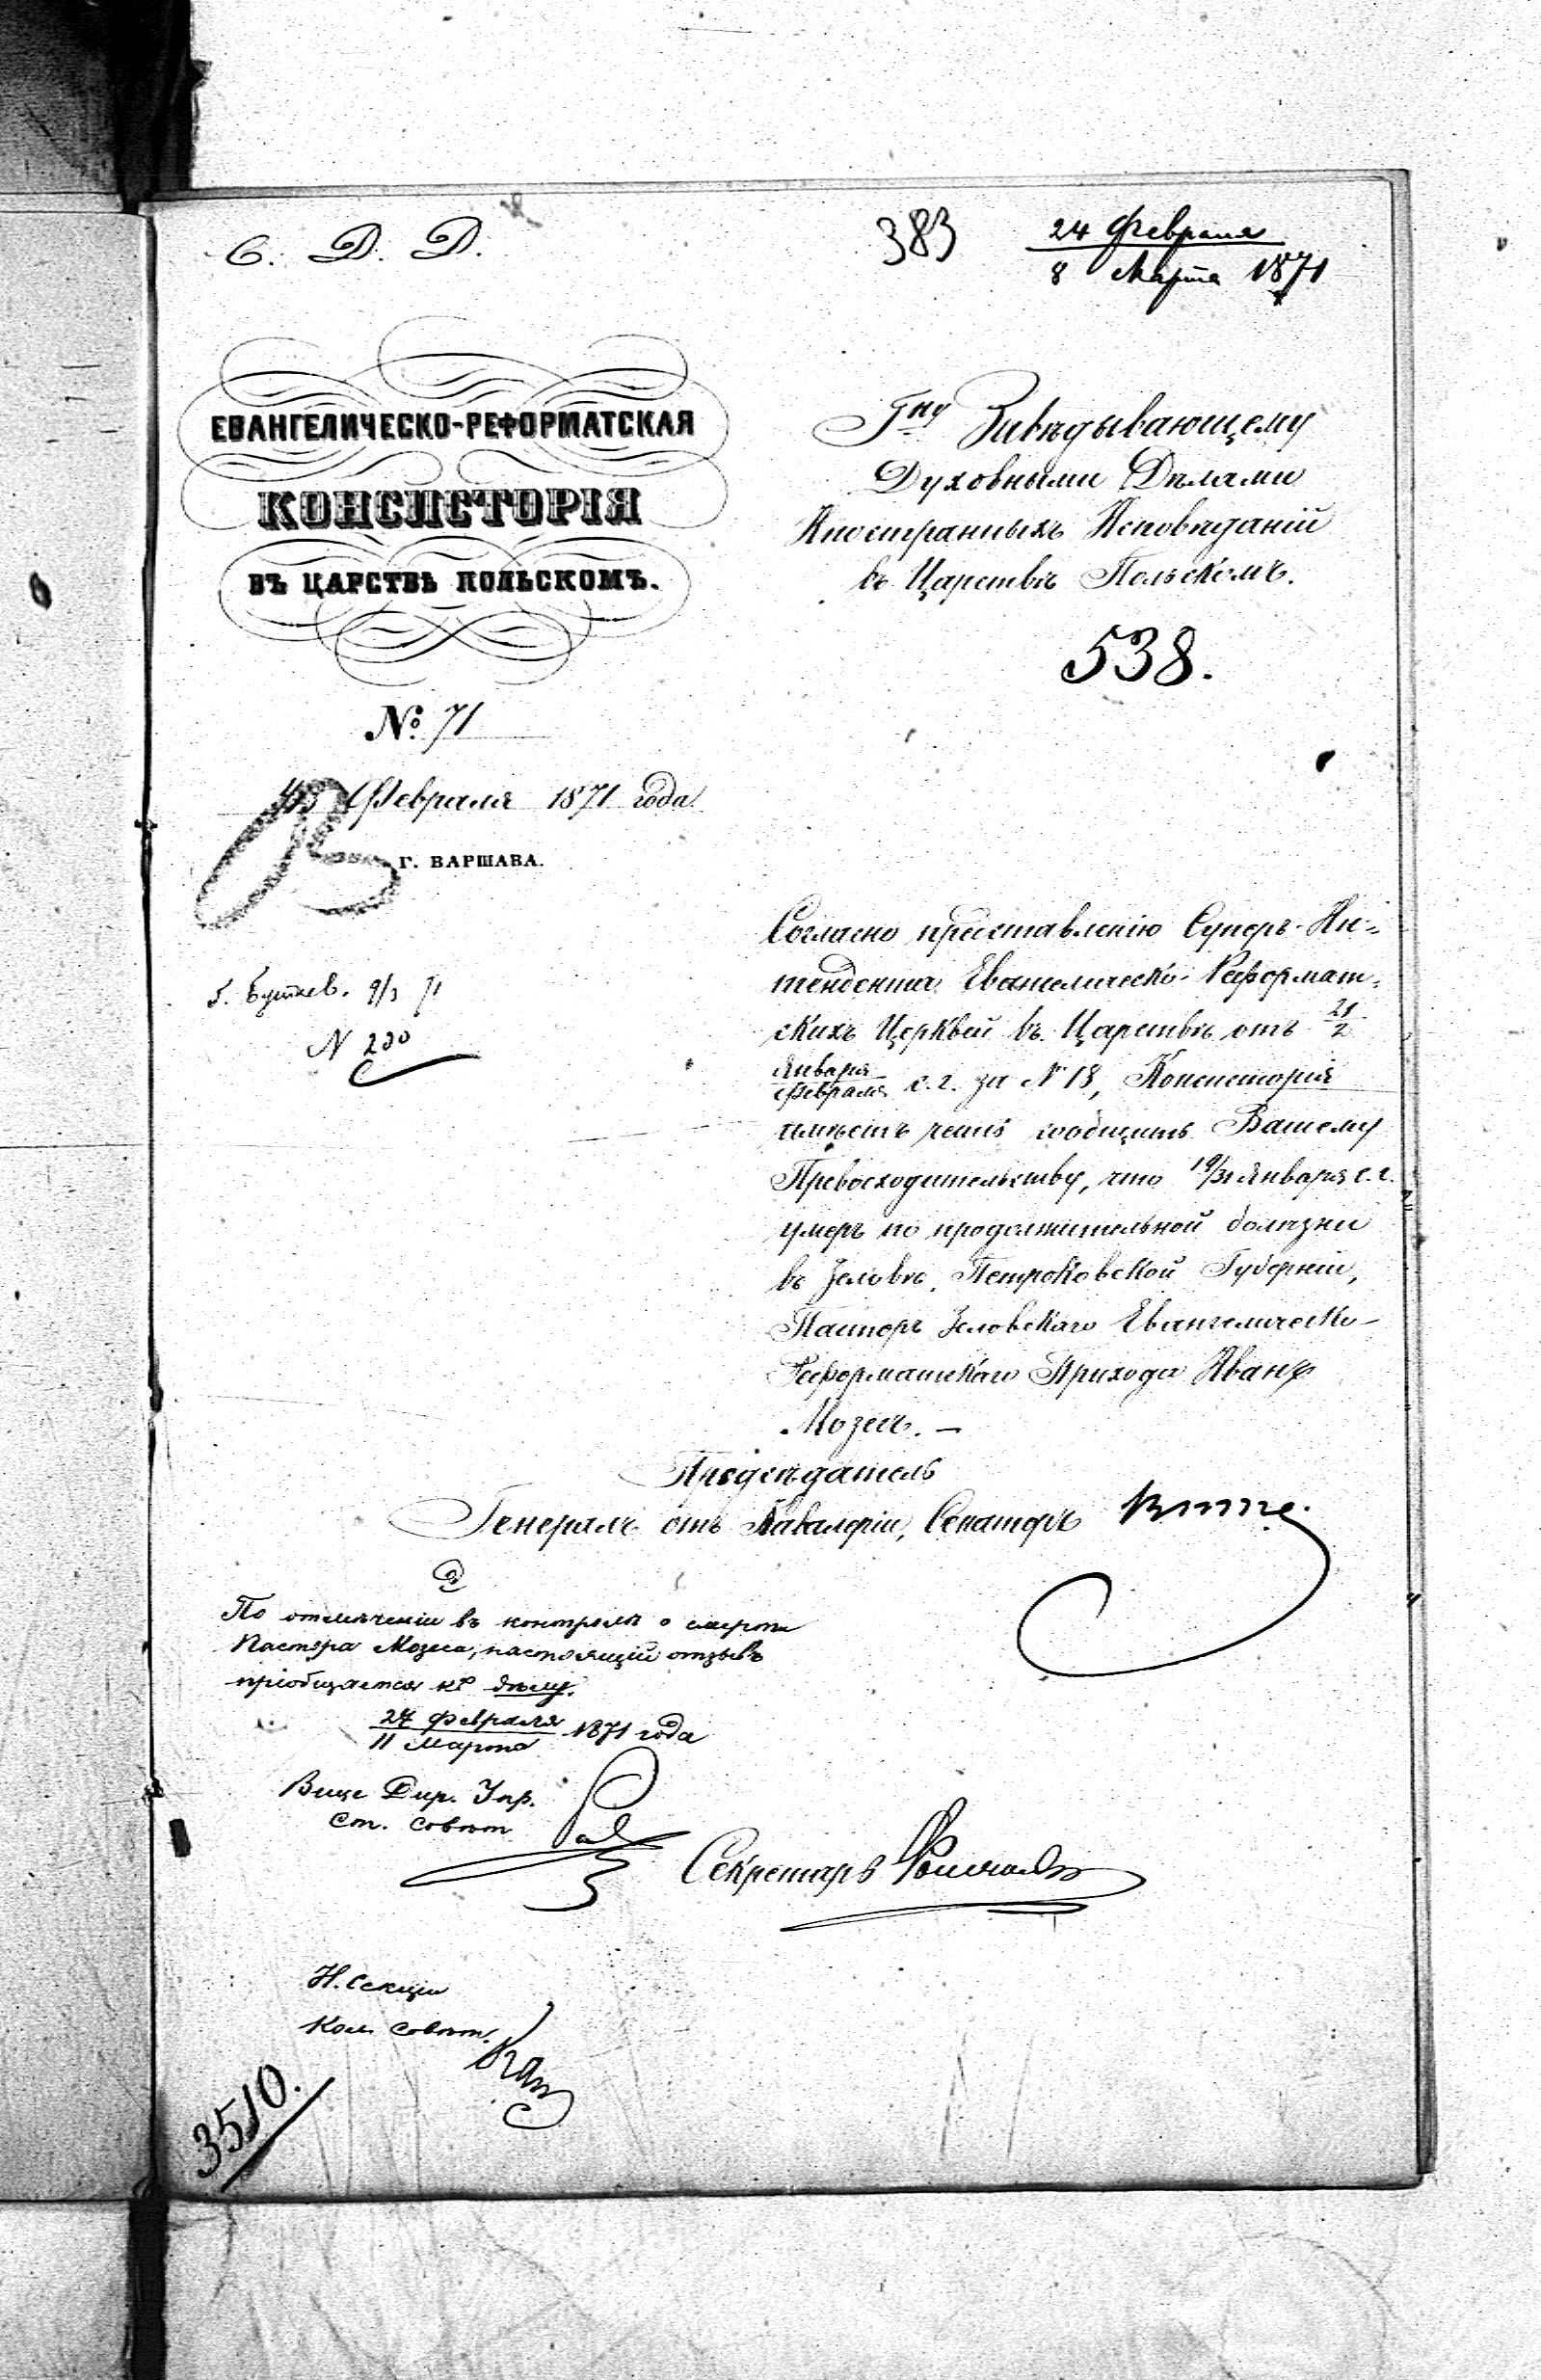 С. Д. Д.
383
24 Февраля
8 Марта 1871
ЕВАНГЕЛИЧЕСКО-РЕФОРМАТСКАЯ
КОНСИСТОРІЯ
ВЪ ЦАРСТВѢ ПОЛЬСКОМЪ.
№ 71
Февраля 1871 года
Г. ВАРШАВА.
9/3 71
N 230
Гну Завѣдывающему
Духовными Дѣлами
Иностранныхъ Исповѣданій
въ Царствѣ Польскомъ.
538.
Согласно представленію Суперъ-Ин-
тендента Евангелическо-Реформат-
скихъ Церквей въ Царствѣ отъ 21/2
Января/Февраля с. г. за № 18, Консисторія
имѣетъ честь сообщить Вашему
Превосходительству, что 19/31 Января с. г.
умеръ по продолжительной болѣзни
въ Зеловѣ, Петроковской Губерніи,
Пасторъ Зеловскаго Евангелическо-
Реформатскаго Прихода Иванъ
Мозесъ. —
Предсѣдатель
Генералъ отъ Кавалеріи, Сенаторъ Витте.
По отмѣченіи въ контролѣ о смерти
Пастора Мозеса, настоящій отзывъ
пріобщается къ дѣлу.
27 Февраля
11 Марта 1871 года
Вице Дир. Упр.
Ст. Совѣт
Секретарь
Н. Секціи
Кол. Совѣт.
3510.